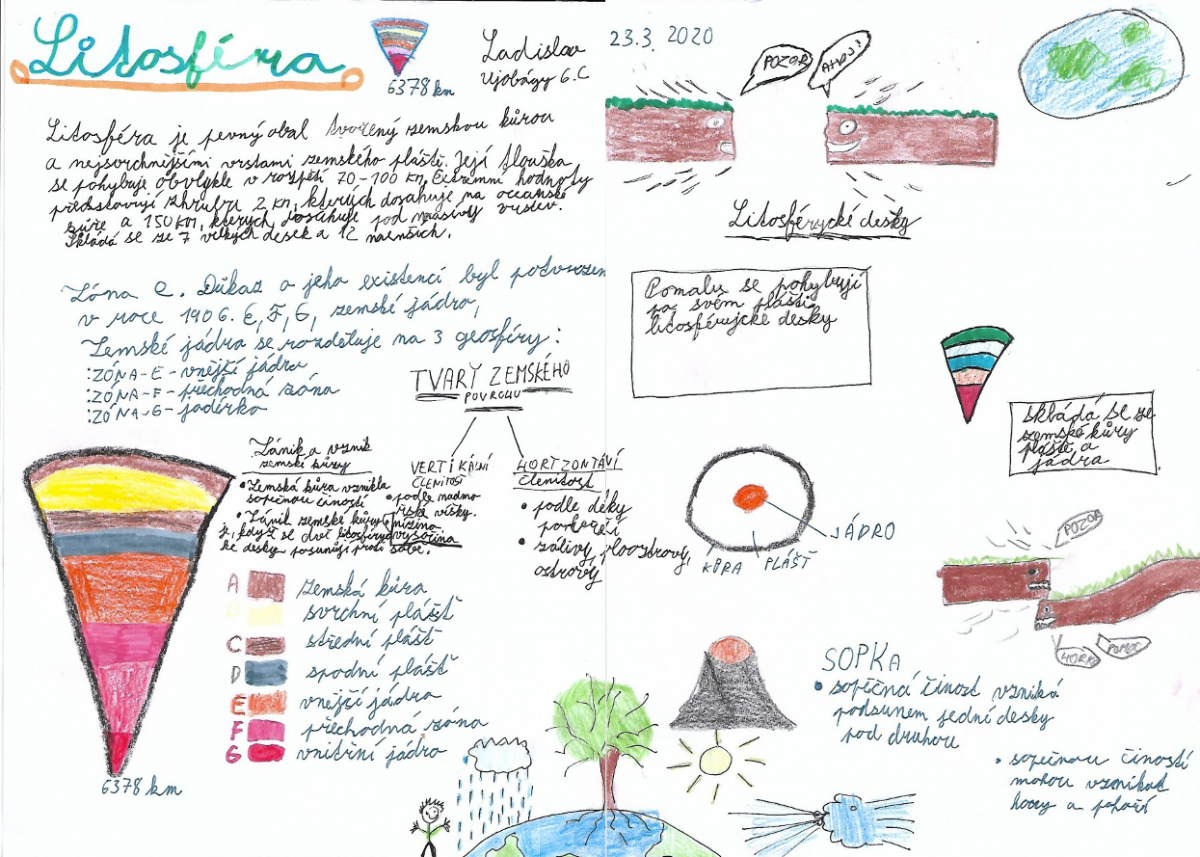 Litosféra
6378 km
Ladislav
Ujobágy 6.C
23.3. 2020
POZOR
AHOJ!
Litosféra je pevný obal tvořený zemskou kůrou
a nejsvrchnějšími vrstami zemského pláště. Její tlouška
se pohybuje obvykle v rozpětí 70-100 km. Extrémní hodnoty
představují zhruba 2 km, kterých dosahuje na oceánské
kůře a 150 km, kterých dosahuje pod masivy vrstev.
Skládá se ze 7 velkých desek a 12 menších.
Litosférycké desky
Zóna e. Důkaz o jeha existenci byl potvrzen
v roce 1906. E, F, G, zemské jádro,
Zemské jádra se rozděluje na 3 geosféry:
:ZÓNA-E-vnější jádro
:ZÓNA-F-přechodná zóna
:ZÓNA-G-jadérko
Pomalu se pohybují
na svém plášti
litosférujcké desky
skládá se ze
zemské kůry
pláště a
jádra
TVARY ZEMSKÉHO
POVRCHU
VERTIKÁLNÍ
ČLENITOST
• podle nadmo
řské výšky.
nížina
vysočina
HORIZONTÁVÍ
členitost
• podle délky
pobřeží
• zálivy, ploostrovy,
ostrovy
Zánik a vznik
zemské kůry
• Zemská kůra vznikla
sopečnou čiností
• Zánik zemské kůry
je, když se dvě litosféryc
ké desky posunují proti sobě.
JÁDRO
KŮRA
PLÁŠŤ
POZOR
HORKO
POMOC
A zemská kůra
B svrchní plášť
C střední plášť
D spodní plášť
E vnější jádro
F přechodná zóna
G vnitřní jádro
6378 km
SOPKA
• sopěčná činost vzniká
podsunem jední desky
pod druhou
• sopečnou čiností
mohou vznikat
hory a pohoří